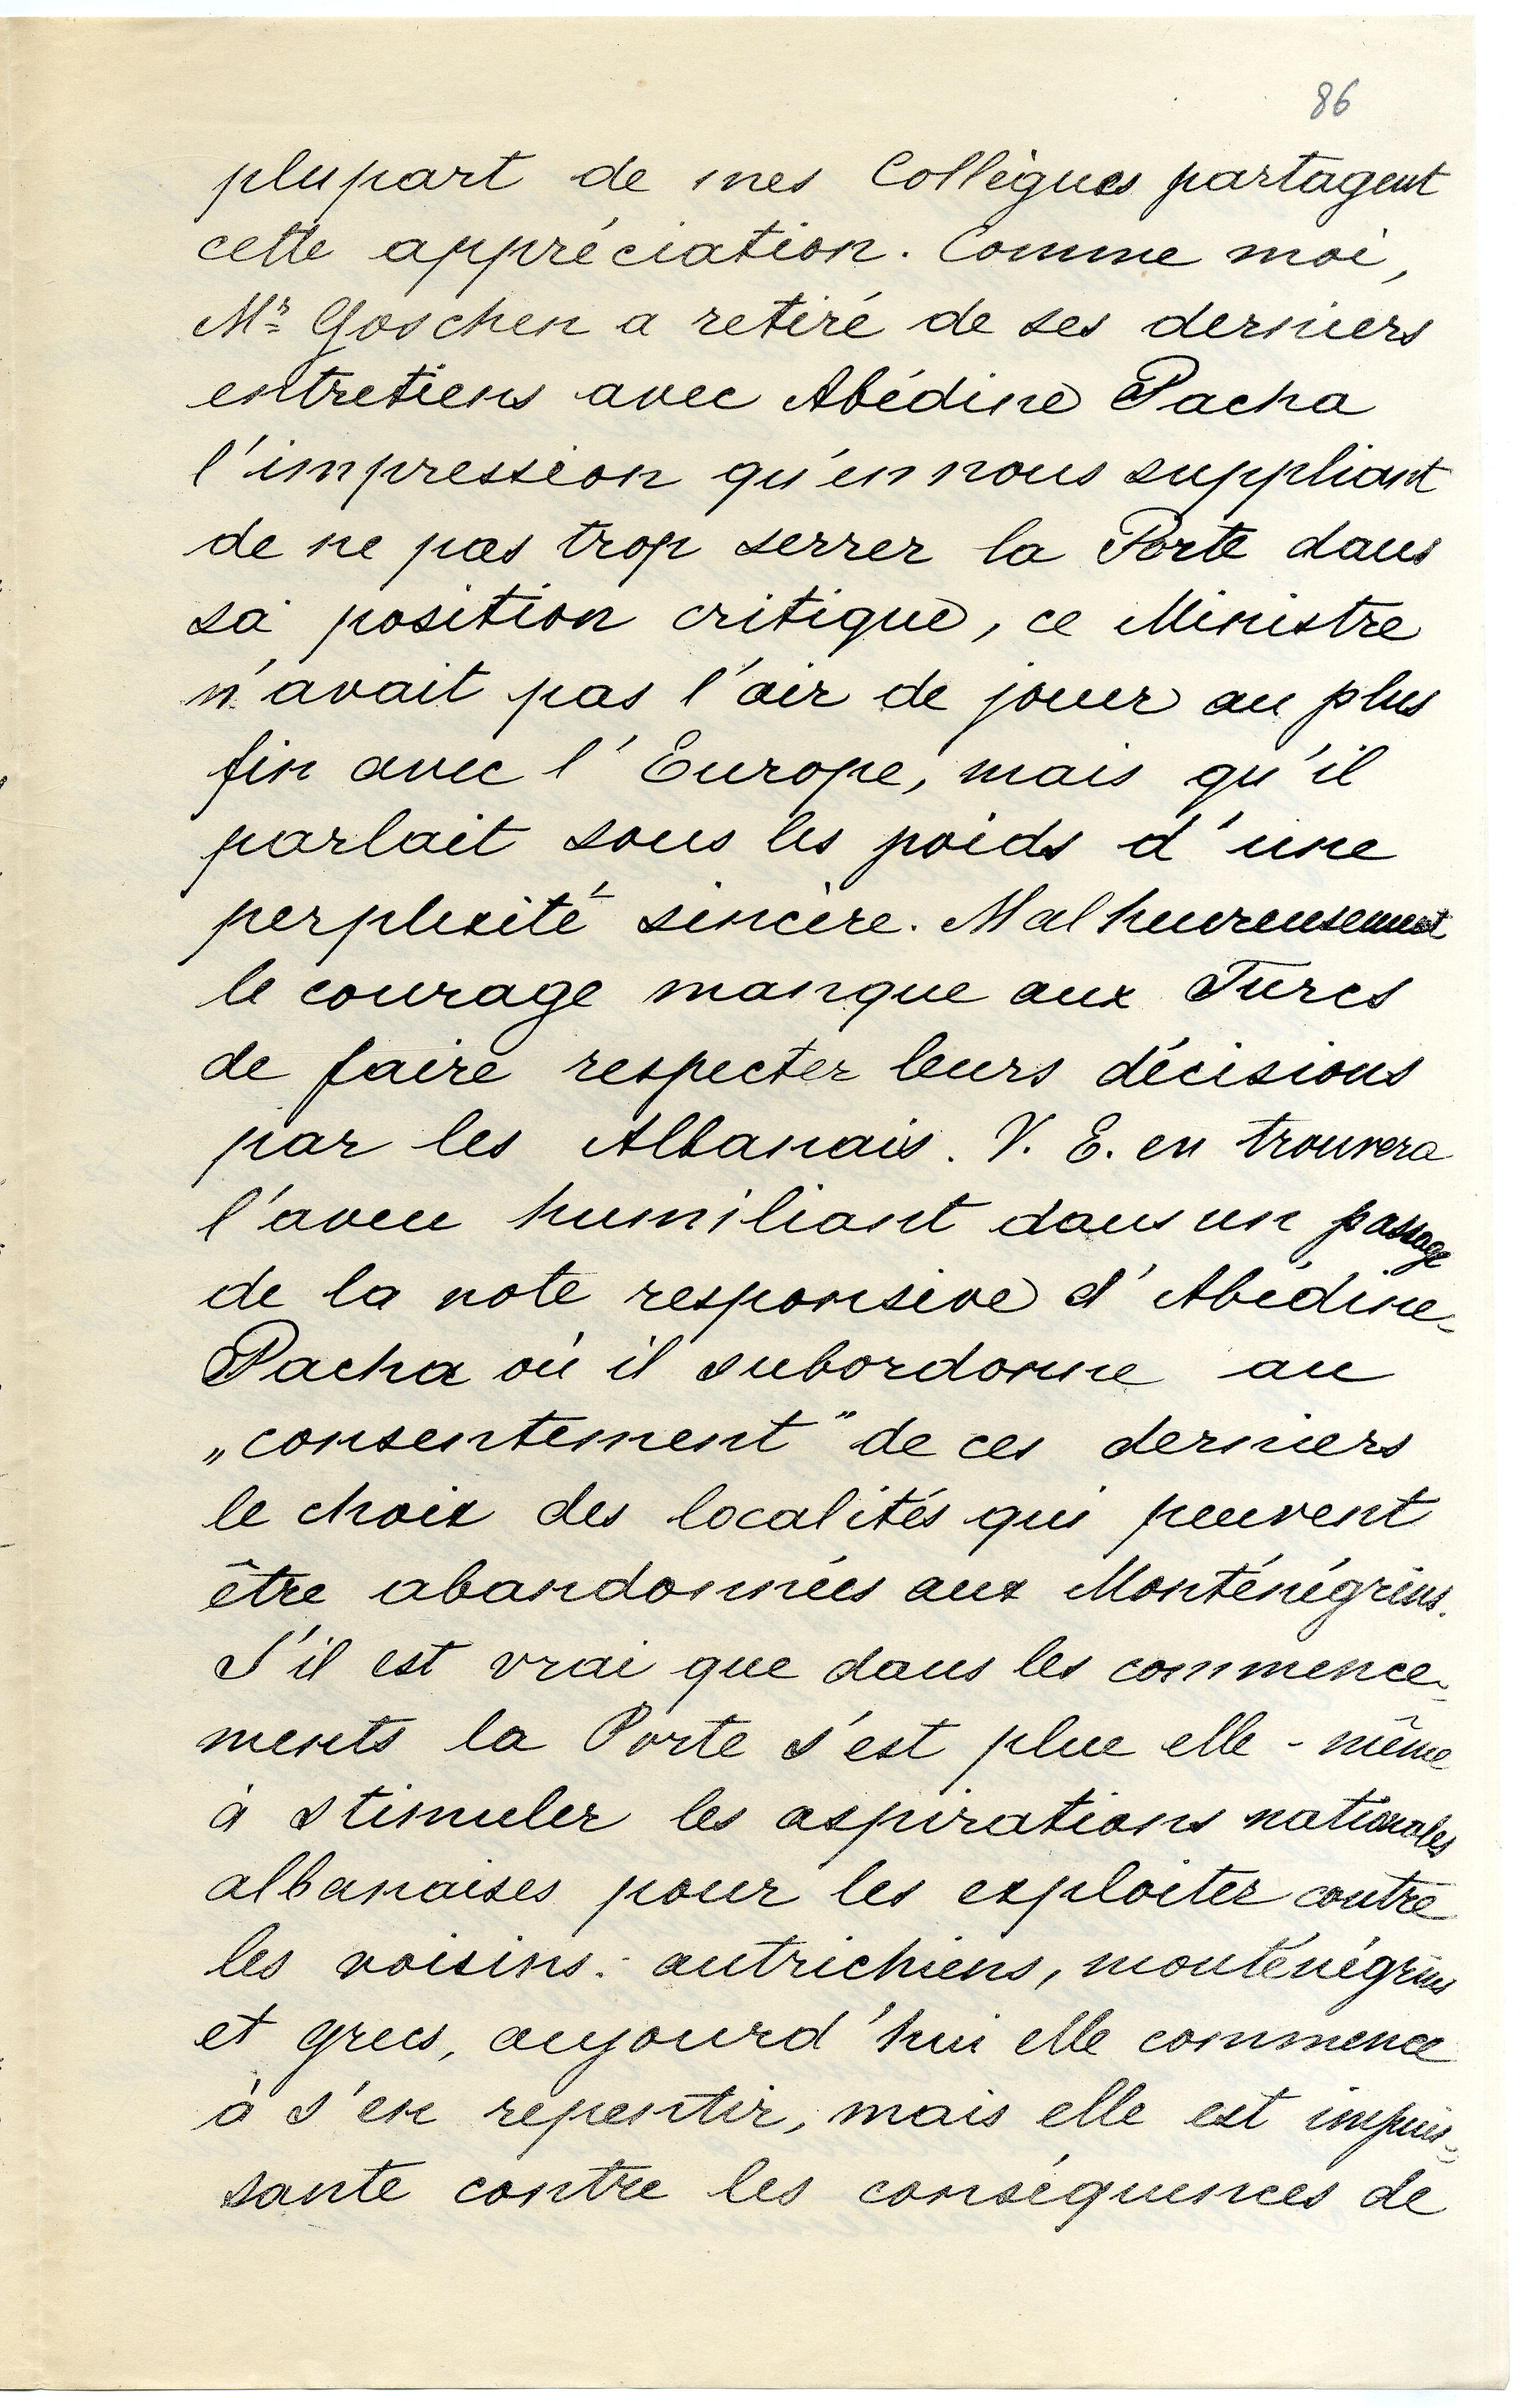 86
plupart de mes Collègues partagent
cette appréciation. Comme moi,
Mr Goschen a retiré de ses derniers
entretiens avec Abédine Pacha
l'impression qu'en nous suppliant
de ne pas trop serrer la Porte dans
sa position critique, ce Ministre
n'avait pas l'air de jouer au plus
fin avec l'Europe, mais qu'il
parlait sous les poids d'une
perplexité sincère. Malheureusement
le courage manque aux Turcs
de faire respecter leurs décisions
par les Albanais. V. E. en trouvera
l'aveu humiliant dans un passage
de la note responsive d'Abédine-
Pacha où il subordonne au
„consentement" de ces derniers
le choix des localités qui peuvent
être abandonnées aux Monténégrins.
S'il est vrai que dans les commence-
ments la Porte s'est plue elle-même
à stimuler les aspirations nationales
albanaises pour les exploiter contre
les voisins: autrichiens, monténégrins
et grecs, aujourd'hui elle commence
à s'en repentir, mais elle est impuis-
sante contre les conséquences de